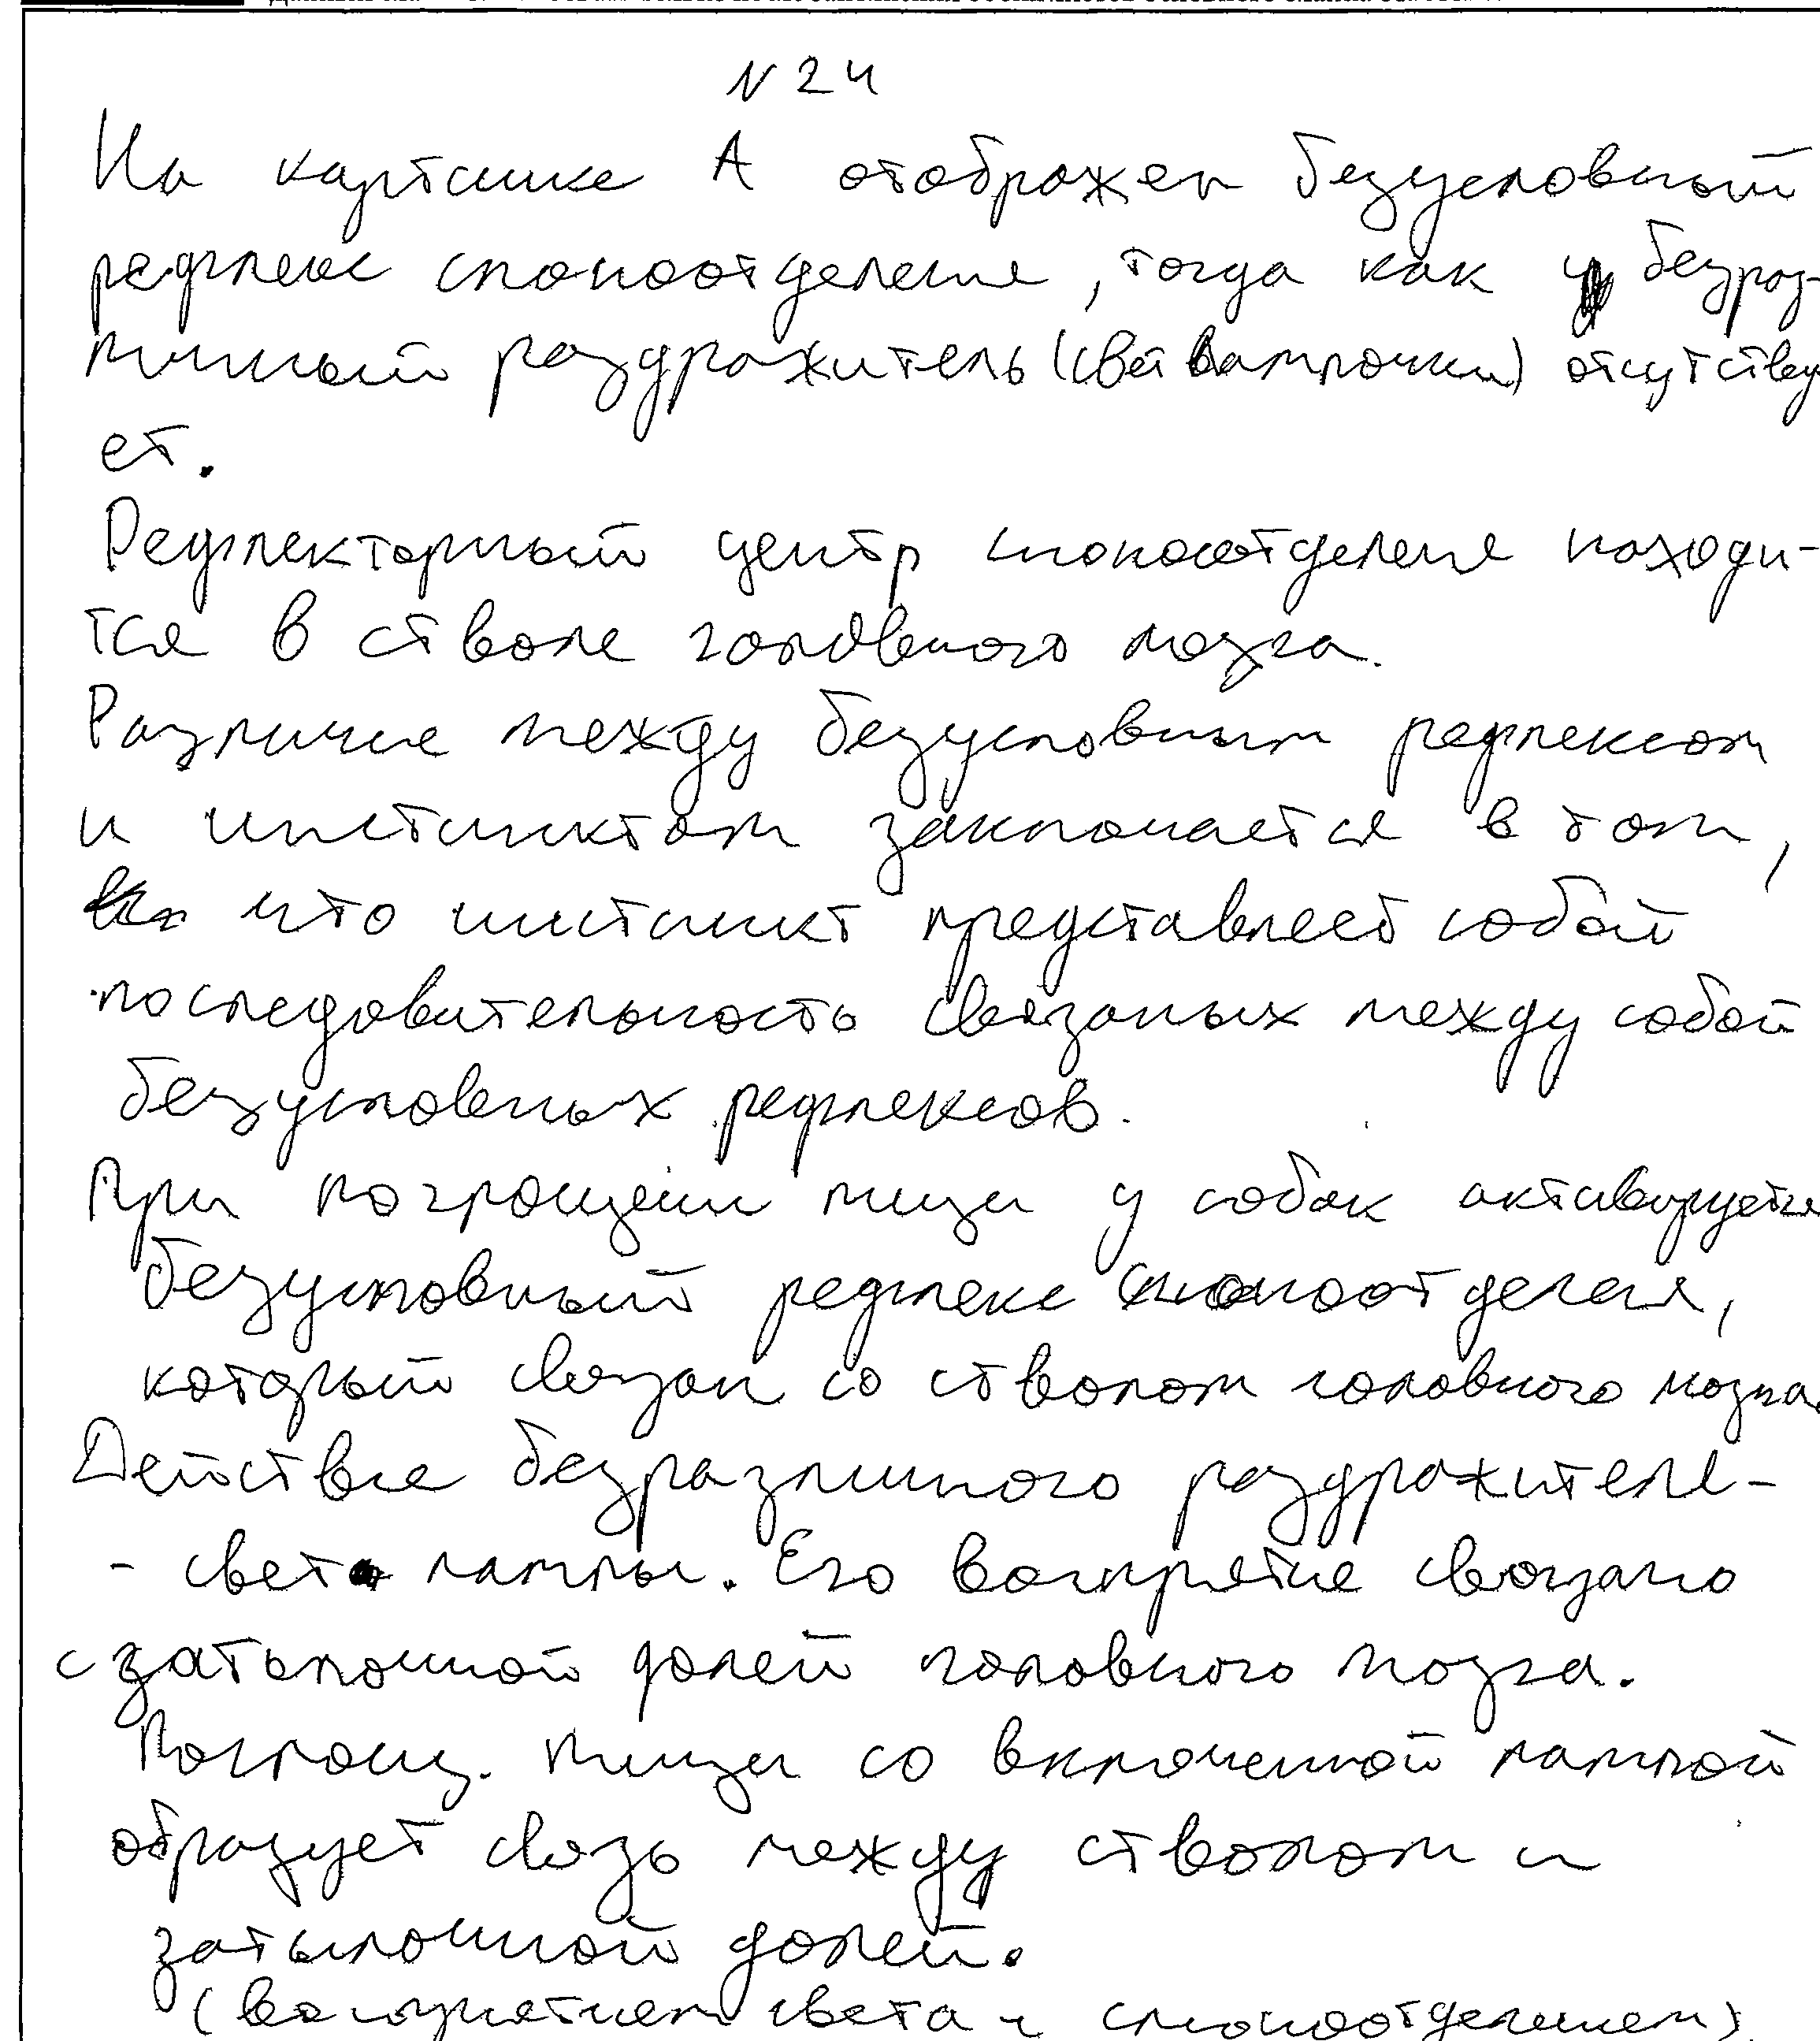 N 24
На картинке А отображен безусловный
рефлекс слюноотделения, тогда как безраз-
личный раздражитель (свет лампочки) отсутству
ет.
Рефлекторный центр слюноотделения находи-
тся в стволе головного мозга.
Различие между безусловным рефлексом
и инстинктом заключается в том,
что инстинкт представляет собой
последовательность связаных между собой
безусловных рефлексов.
При поглощении пищи у собак активируется
безусловный рефлекс слюноотделения,
который связан со стволом головного мозга.
Действие безразличного раздражителя -
- света лампы. Его восприятие связано
с затылочной долей головного мозга.
Поглощ. пищи со включенной лампой
образует связь между стволом и
затылочной долей.
(восприятием света и слюноотделением).